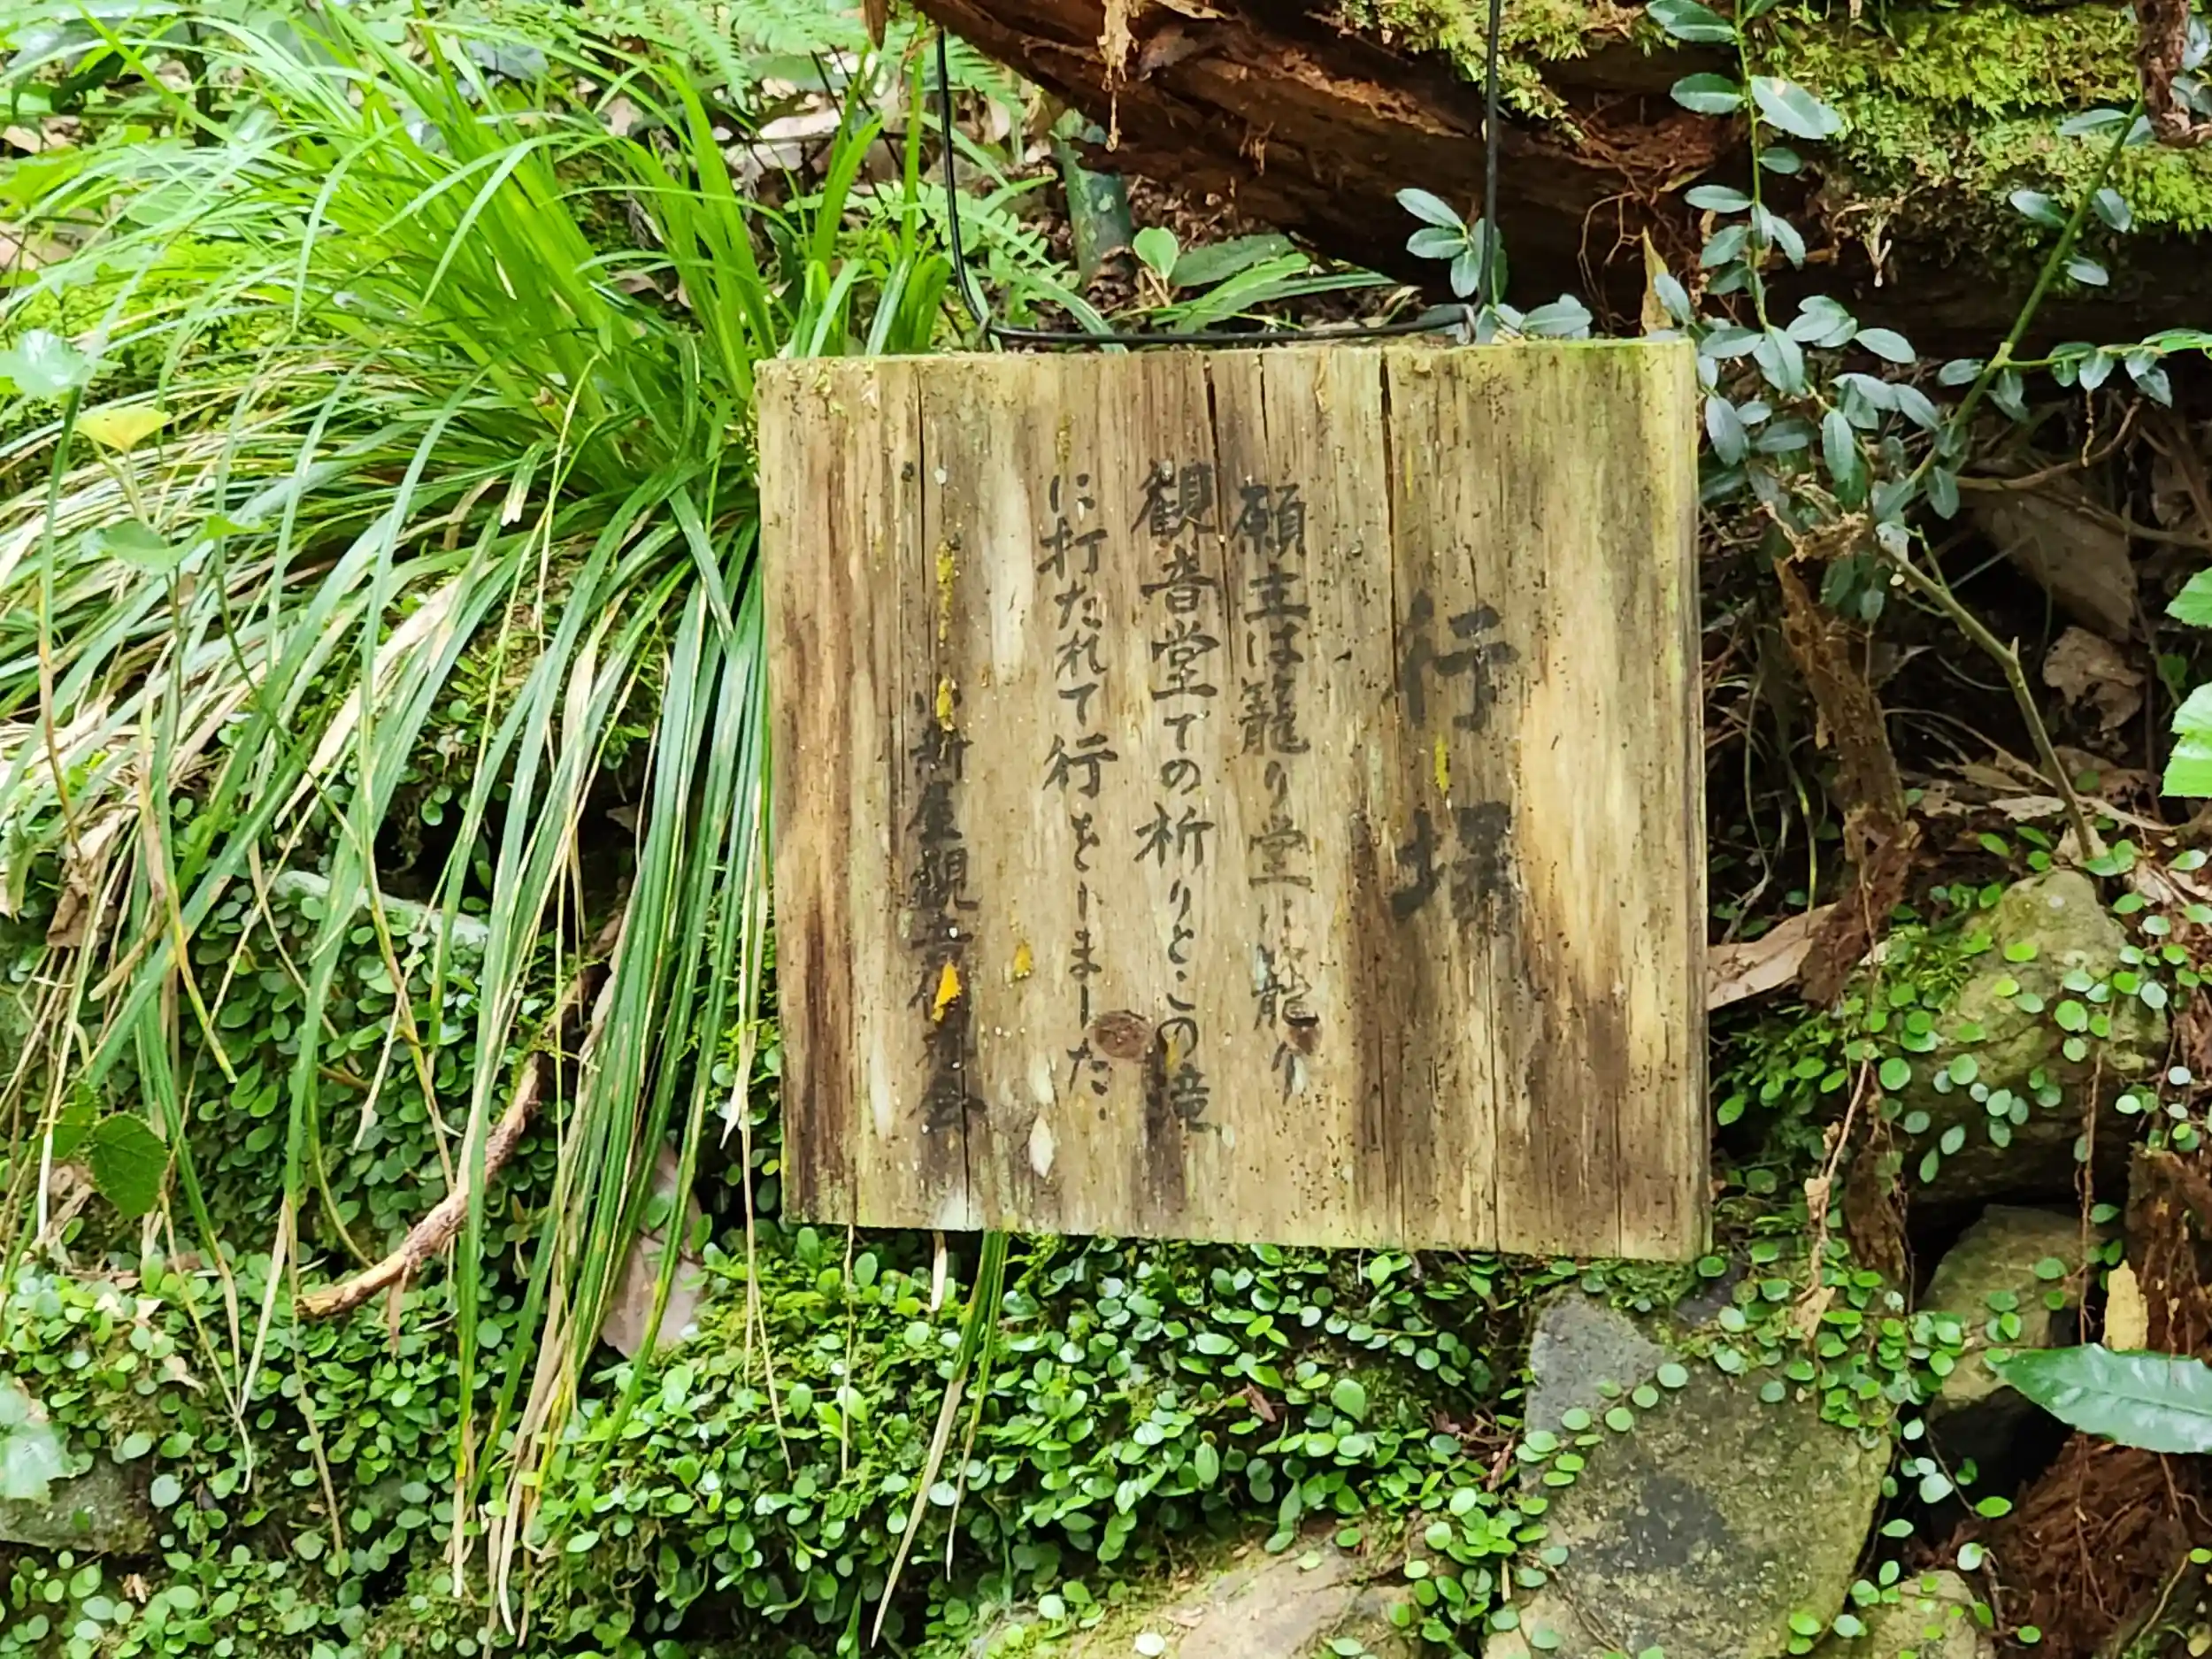 行場
願主は籠り堂に籠り
観音堂での祈りとこの滝
に打たれて行をしました。
新屋観音保存会